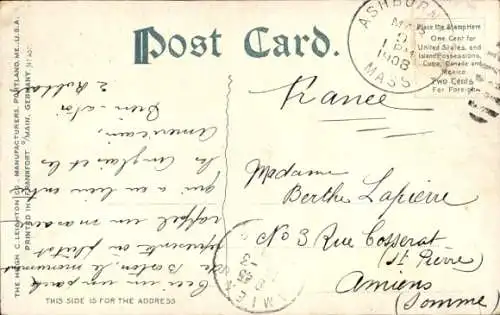 Post Card.
ASHBURN
MAR
9
1 PM
1908
MASS
Place the Stamp Here
One Cent for
United States, and
Island Possessions,
Cuba, Canada and
Mexico.
Two Cents
For Foreign.
THE HUGH C. LEIGHTON CO., MANUFACTURERS, PORTLAND, ME., U.S.A.
PRINTED IN FRANKFORT O/MAIN, GERMANY
France
Madame
Berthe Lapierre
No 3 Rue Cosserat
(St Pierre)
Amiens
(Somme)
Ceci un park
de Boston, le monument
représente ou plutôt
rappel un
qui a eu lieu entre
les Anglais et les
Américains,
AMIENS
THIS SIDE IS FOR THE ADDRESS